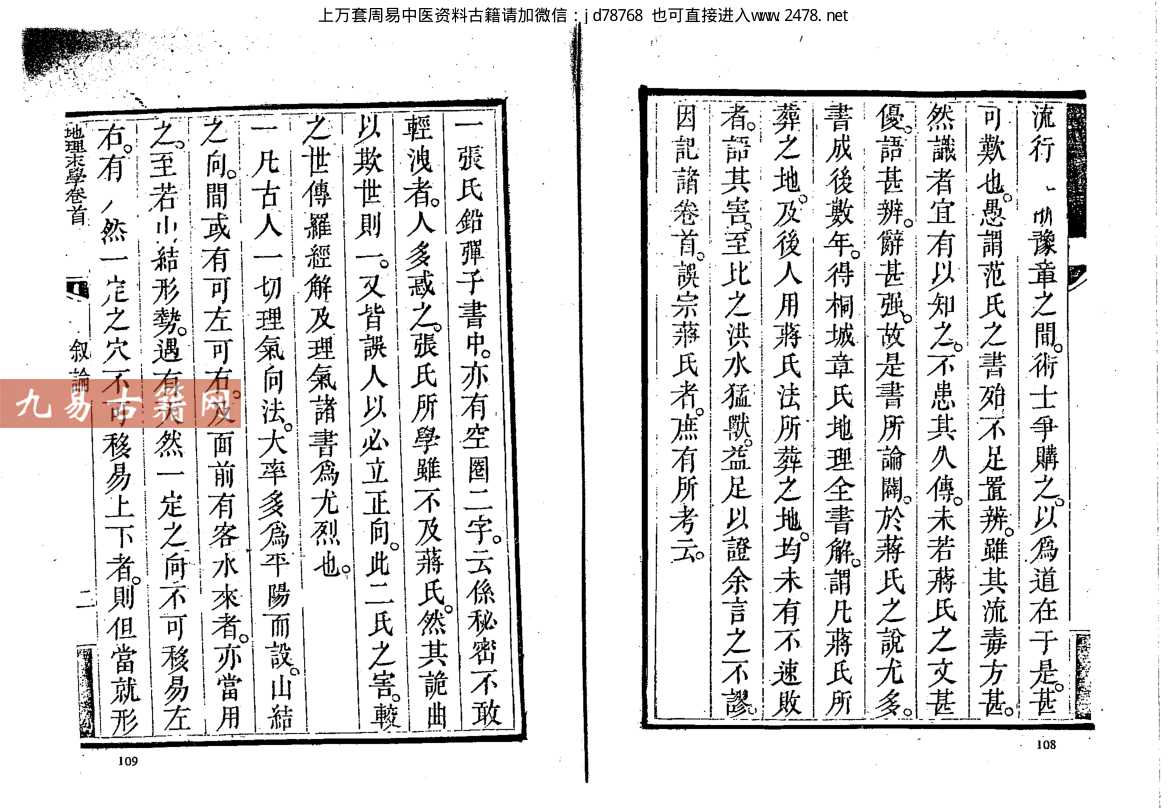 上万套周易中医资料古籍请加微信：jd78768 也可直接进入www.2478.net
流行 豫章之間。術士爭購之。以爲道在于是。甚
可歎也。愚謂范氏之書殆不足置辨。雖其流毒方甚。
然識者宜有以知之。不患其久傳。未若蔣氏之文甚
優。語甚辨。辭甚强。故是書所論闢。於蔣氏之說尤多。
書成後數年。得桐城章氏地理全書解。謂凡蔣氏所
葬之地。及後人用蔣氏法所葬之地。均未有不速敗
者。語其害。至比之洪水猛獸。益足以證余言之不謬。
因記諸卷首。誤宗蔣氏者。庶有所考云。
108
一張氏鉛彈子書中。亦有空圈二字。云係秘密不敢
輕洩者。人多惑之。張氏所學雖不及蔣氏。然其詭曲
以欺世則一。又皆誤人以必立正向。此二氏之害。較
之世傳羅經解及理氣諸書爲尤烈也。
一凡古人一切理氣向法。大率多爲平陽而設。山結
之向。間或有可左可右。及面前有客水來者。亦當用
之。至若山結形勢。遇有天然一定之向不可移易左
右。有 然一定之穴不可移易上下者。則但當就形
地理末學卷首
叙論
二
109
九易古籍网